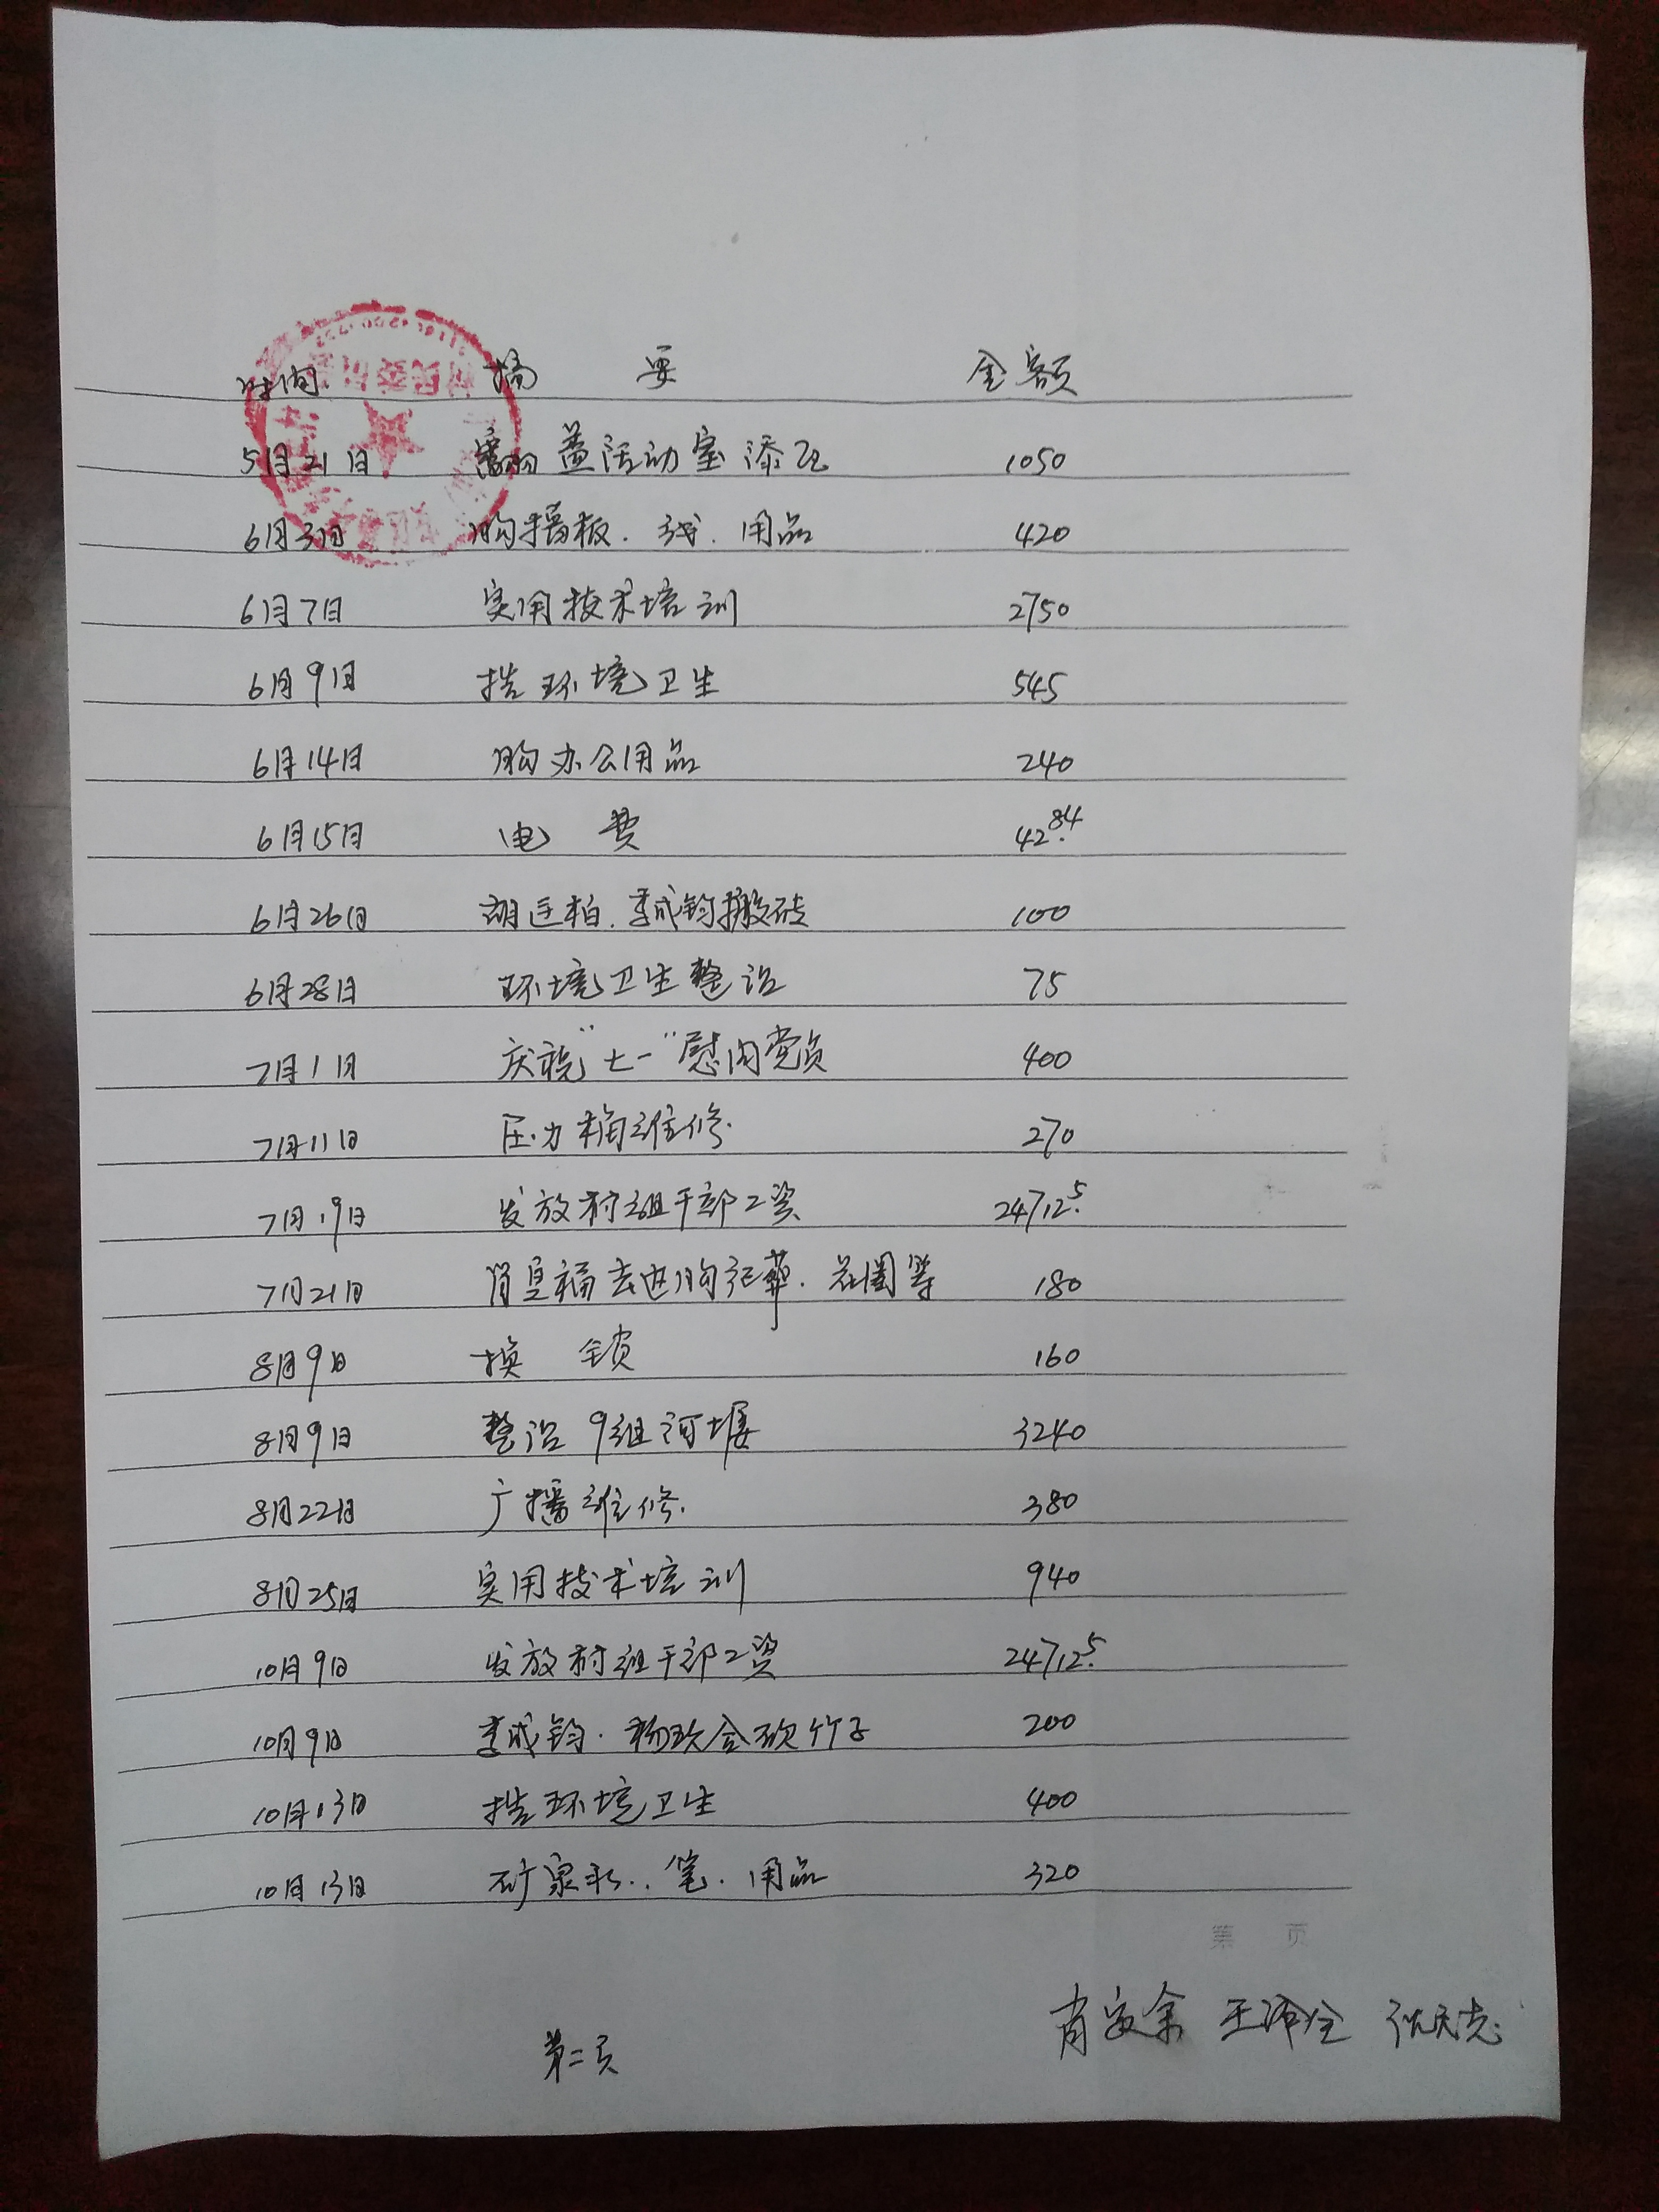 时间 摘 要 金额
5月21日 翻盖活动室添瓦 1050
6月3日 购插板.线.用品 420
6月7日 实用技术培训 2750
6月9日 搞环境卫生 545
6月14日 购办公用品 240
6月15日 电 费 42.84
6月26日 胡廷柏.李成钧搬砖 100
6月28日 环境卫生整治 75
7月1日 庆祝"七一"慰问党员 400
7月11日 压力桶维修. 270
7月19日 发放村组干部工资 24712.5
7月21日 肖 福去世购 .花圈等 180
8月9日 换 锁 160
8月9日 整治9组河堰 3240
8月22日 广播维修. 380
8月25日 实用技术培训 940
10月9日 发放村组干部工资 24712.5
10月9日 李成钧.杨 砍竹子 200
10月13日 搞环境卫生 400
10月13日 矿泉水..笔.用品 320
第 页
肖安余 王泽全 张天志
第二页
村民委员会